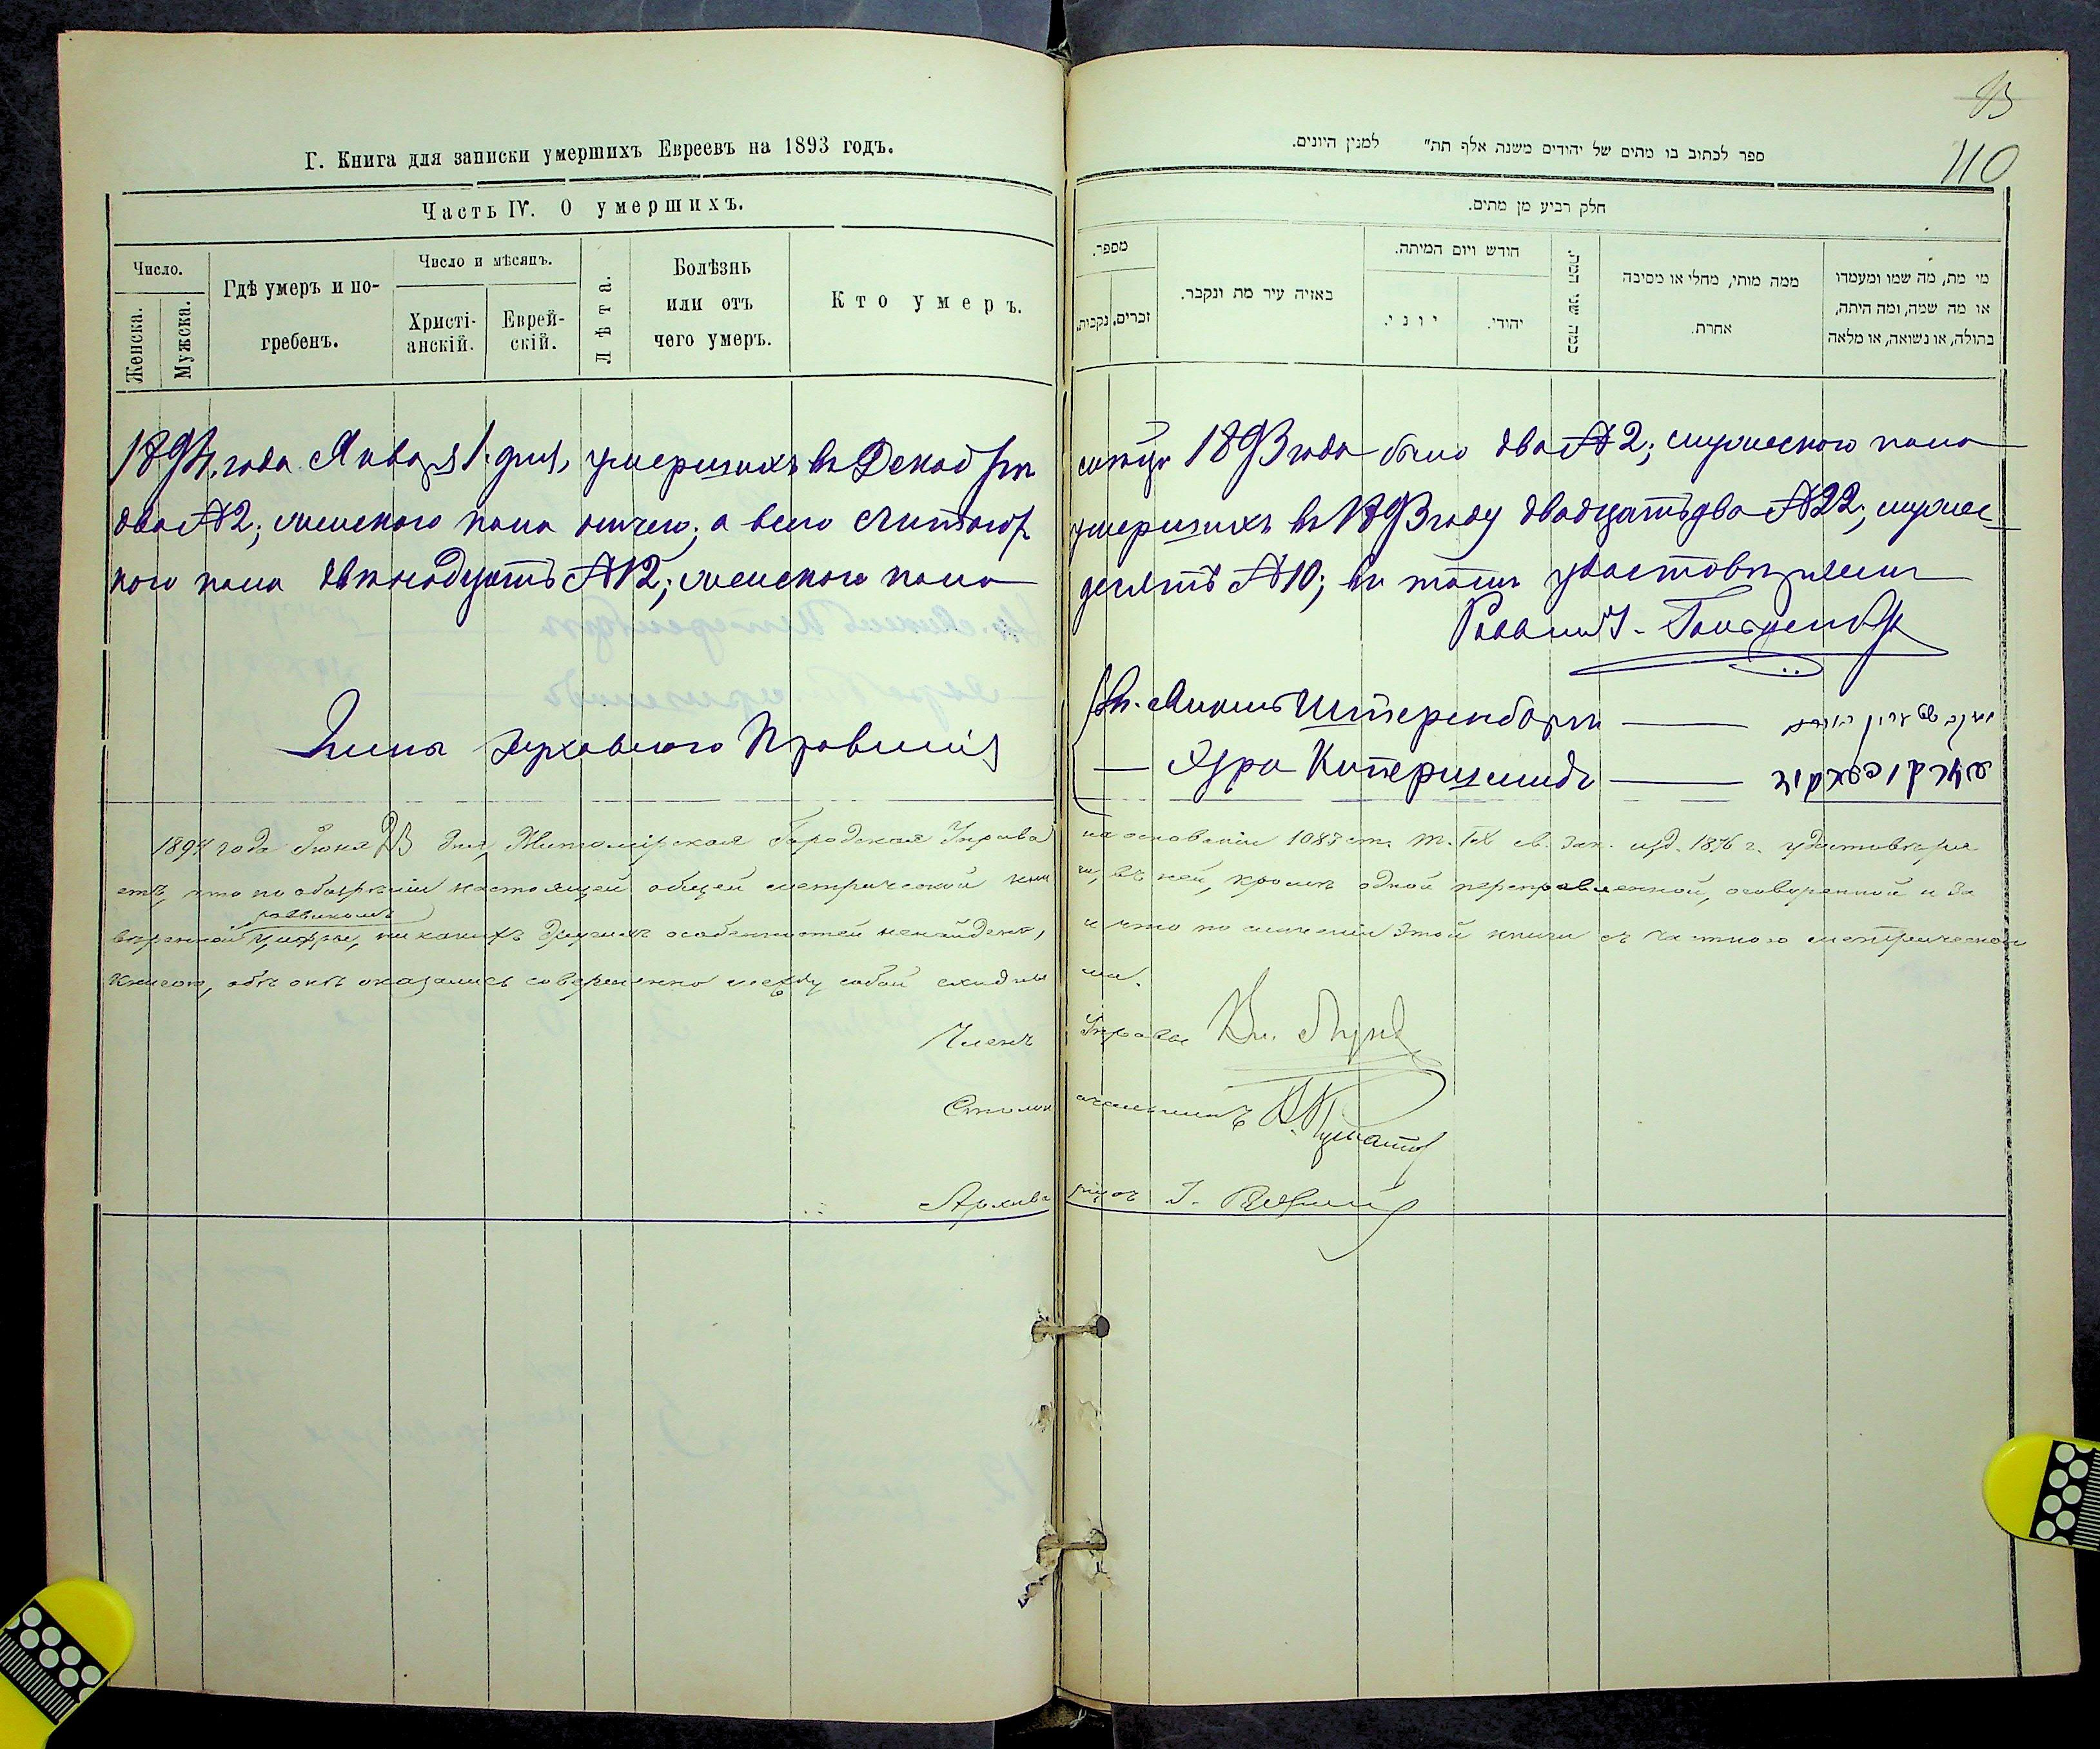 Г. Книга для записки умершихъ Евреевъ на 1893 годъ.
Часть IV. О умершихъ.
Число.
Женска.
Мужска.
Гдѣ умеръ и по-
гребенъ.
Число и мѣсяцъ.
Христі-
анскій.
Еврей-
скій.
Лѣта.
Болѣзнь
или отъ
чего умеръ.
Кто умеръ.
93
110
ספר לכתוב בו מתים של יהודים משנת אלף תת״ למנין היונים.
חלק רביע מן מתים.
מספר.
זכרים.
נקבות.
באזיה עיר מת ונקבר.
חודש ויום המיתה.
יוני.
יהודי.
כמה שני המת.
ממה מותו, מחלי או מסיבה
אחרת.
מי מת, מה שמו ומעמדו
או מה שמה, ומה היתה,
בתולה, או נשואה, או מלאה
1894 года Января 1 дня, умершихъ въ Декабрѣ мѣсяцѣ 1893 года было два №2; мужескаго пола
два №2; женскаго пола ничего; а всего умершихъ въ 1893 году двадцать два №22; мужес-
кого пола двѣнадцать №12; женскаго пола десять №10; въ томъ удостовѣряемъ
Раввинъ
Члены Духовнаго Правленія
Штеренбергъ
Купершмидъ
1894 года Іюня 23 дня, Житомірская Городская Управа на основаніи 1083 ст. т. IX св. зак. изд. 1876 г. удостовѣря
етъ, что по обозрѣніи настоящей общей метрической книги, въ ней, кромѣ одной переправленной, оговоренной и за
вѣренной раввиномъ цифры, никакихъ другихъ особенностей ненайдено, и что по сличеніи этой книги съ частною метрическою
книгою, обѣ онѣ оказались совершенно между собой сходны ми.
Членъ Управы
Столоначальникъ
Архиваріусъ